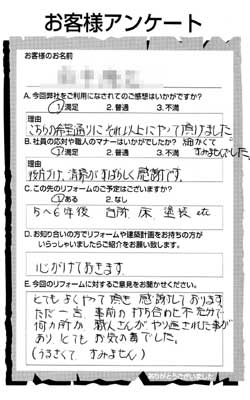 お客様アンケート
お客様のお名前
A. 今回弊社をご利用になされてのご感想はいかがですか?
1. 満足 2. 普通 3. 不満
理由
こちらの希望通りにそれ以上にやって頂けました
B. 社員の応対や職人のマナーはいかがでしたか? 細かくて
1. 満足 2. 普通 3. 不満 すみませんでした。
理由
後片づけ、清掃がすばらしく感謝です。
C. この先のリフォームのご予定はございますか?
1. ある 2. なし
5〜6年後 台所、床、塗装 etc
D. お知り合いの方でリフォームや建築計画をお持ちの方が
いらっしゃいましたらご紹介をお願い致します。
心がけておきます
E. 今回のリフォームに対するご意見をお聞かせください。
とてもよくやって頂き感謝しております。
ただ一言、事前の打ち合わせ不充分で
何カ所か、職人さんがやり直された事が
あり、とてもお気の毒でした。
(うるさくて、すみません)
ありがとうございました